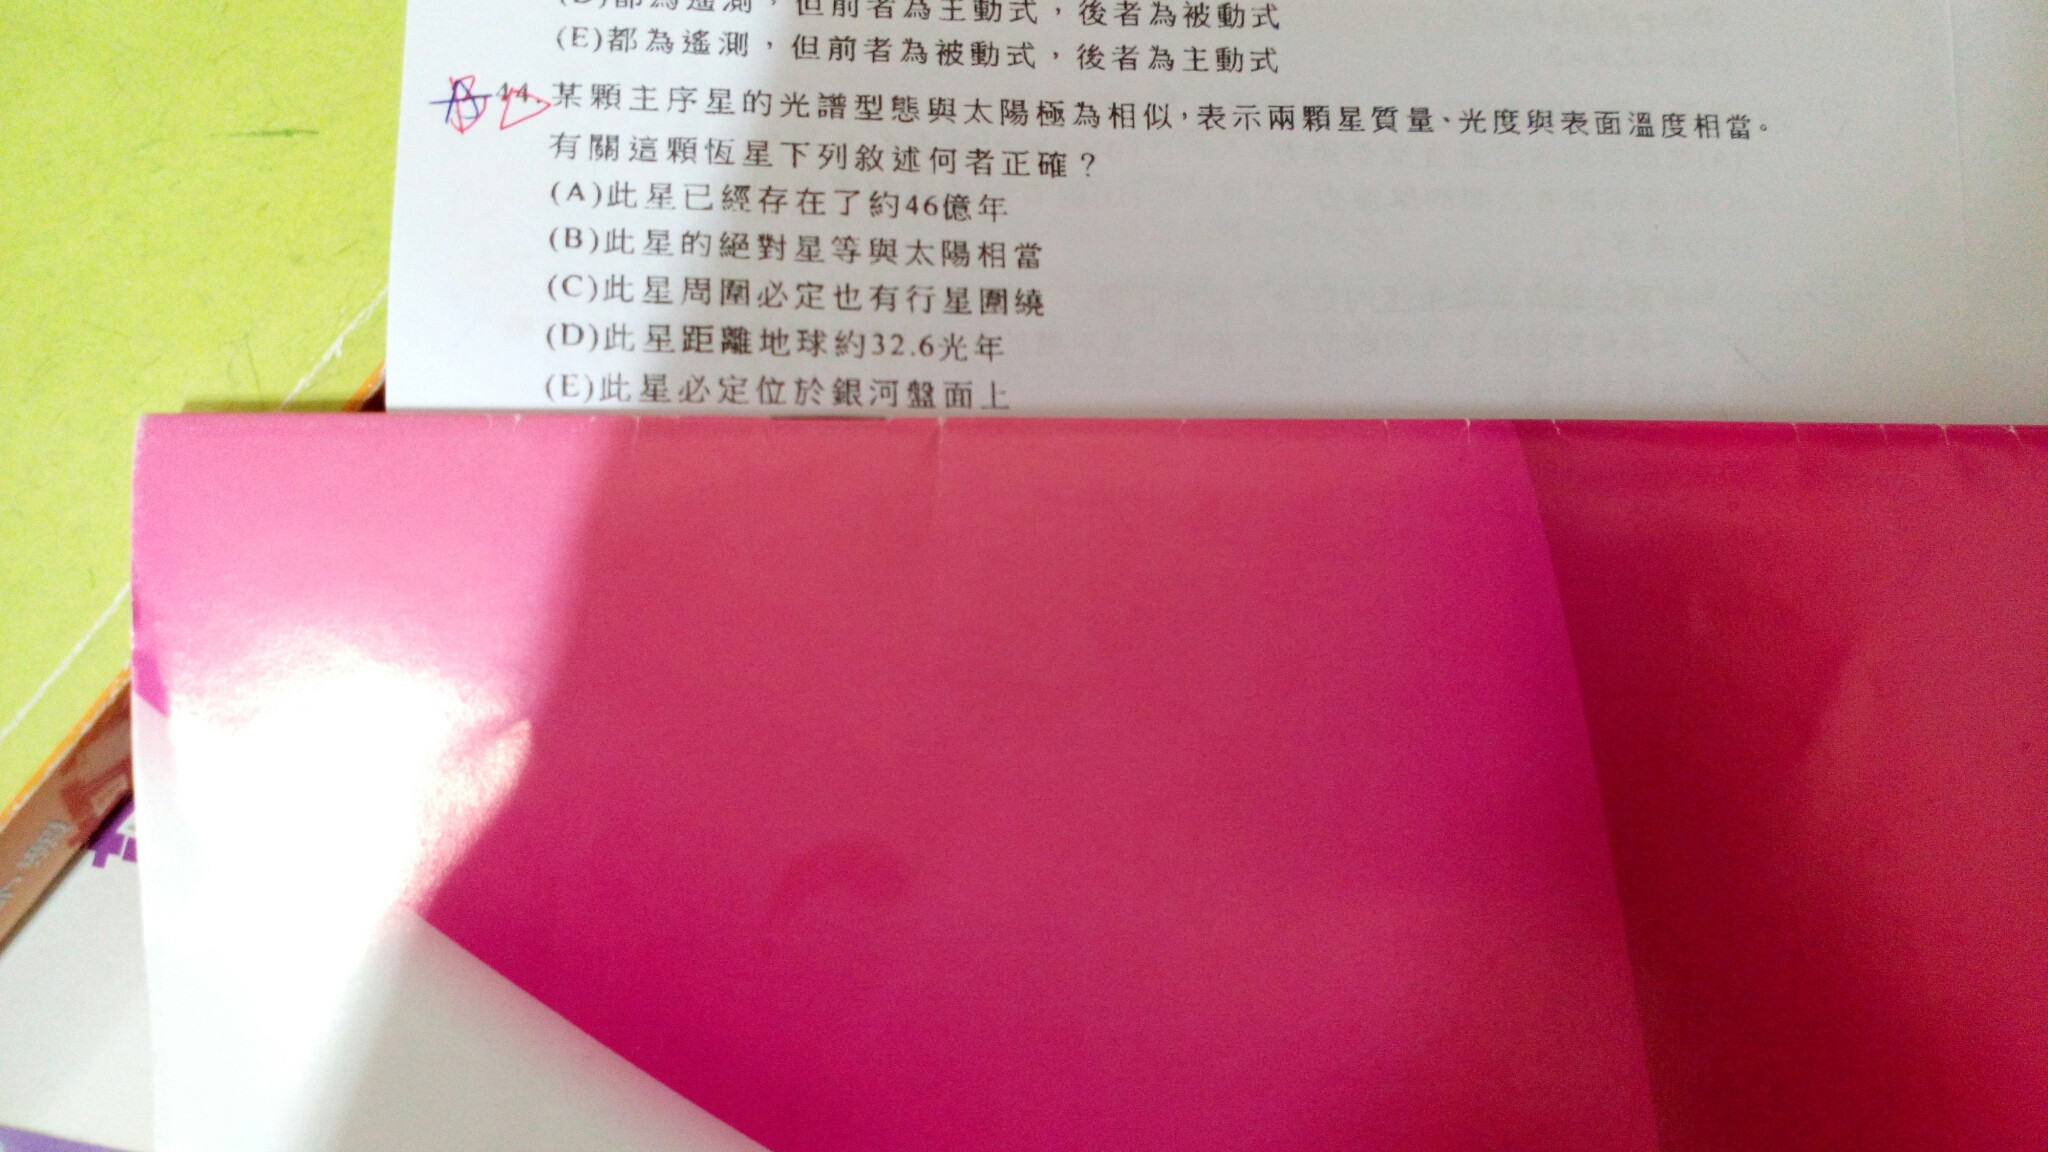 (D)都為遙測，但前者為主動式，後者為被動式
(E)都為遙測，但前者為被動式，後者為主動式
44.某顆主序星的光譜型態與太陽極為相似，表示兩顆星質量、光度與表面溫度相當。
有關這顆恆星下列敘述何者正確？
(A)此星已經存在了約46億年
(B)此星的絕對星等與太陽相當
(C)此星周圍必定也有行星圍繞
(D)此星距離地球約32.6光年
(E)此星必定位於銀河盤面上